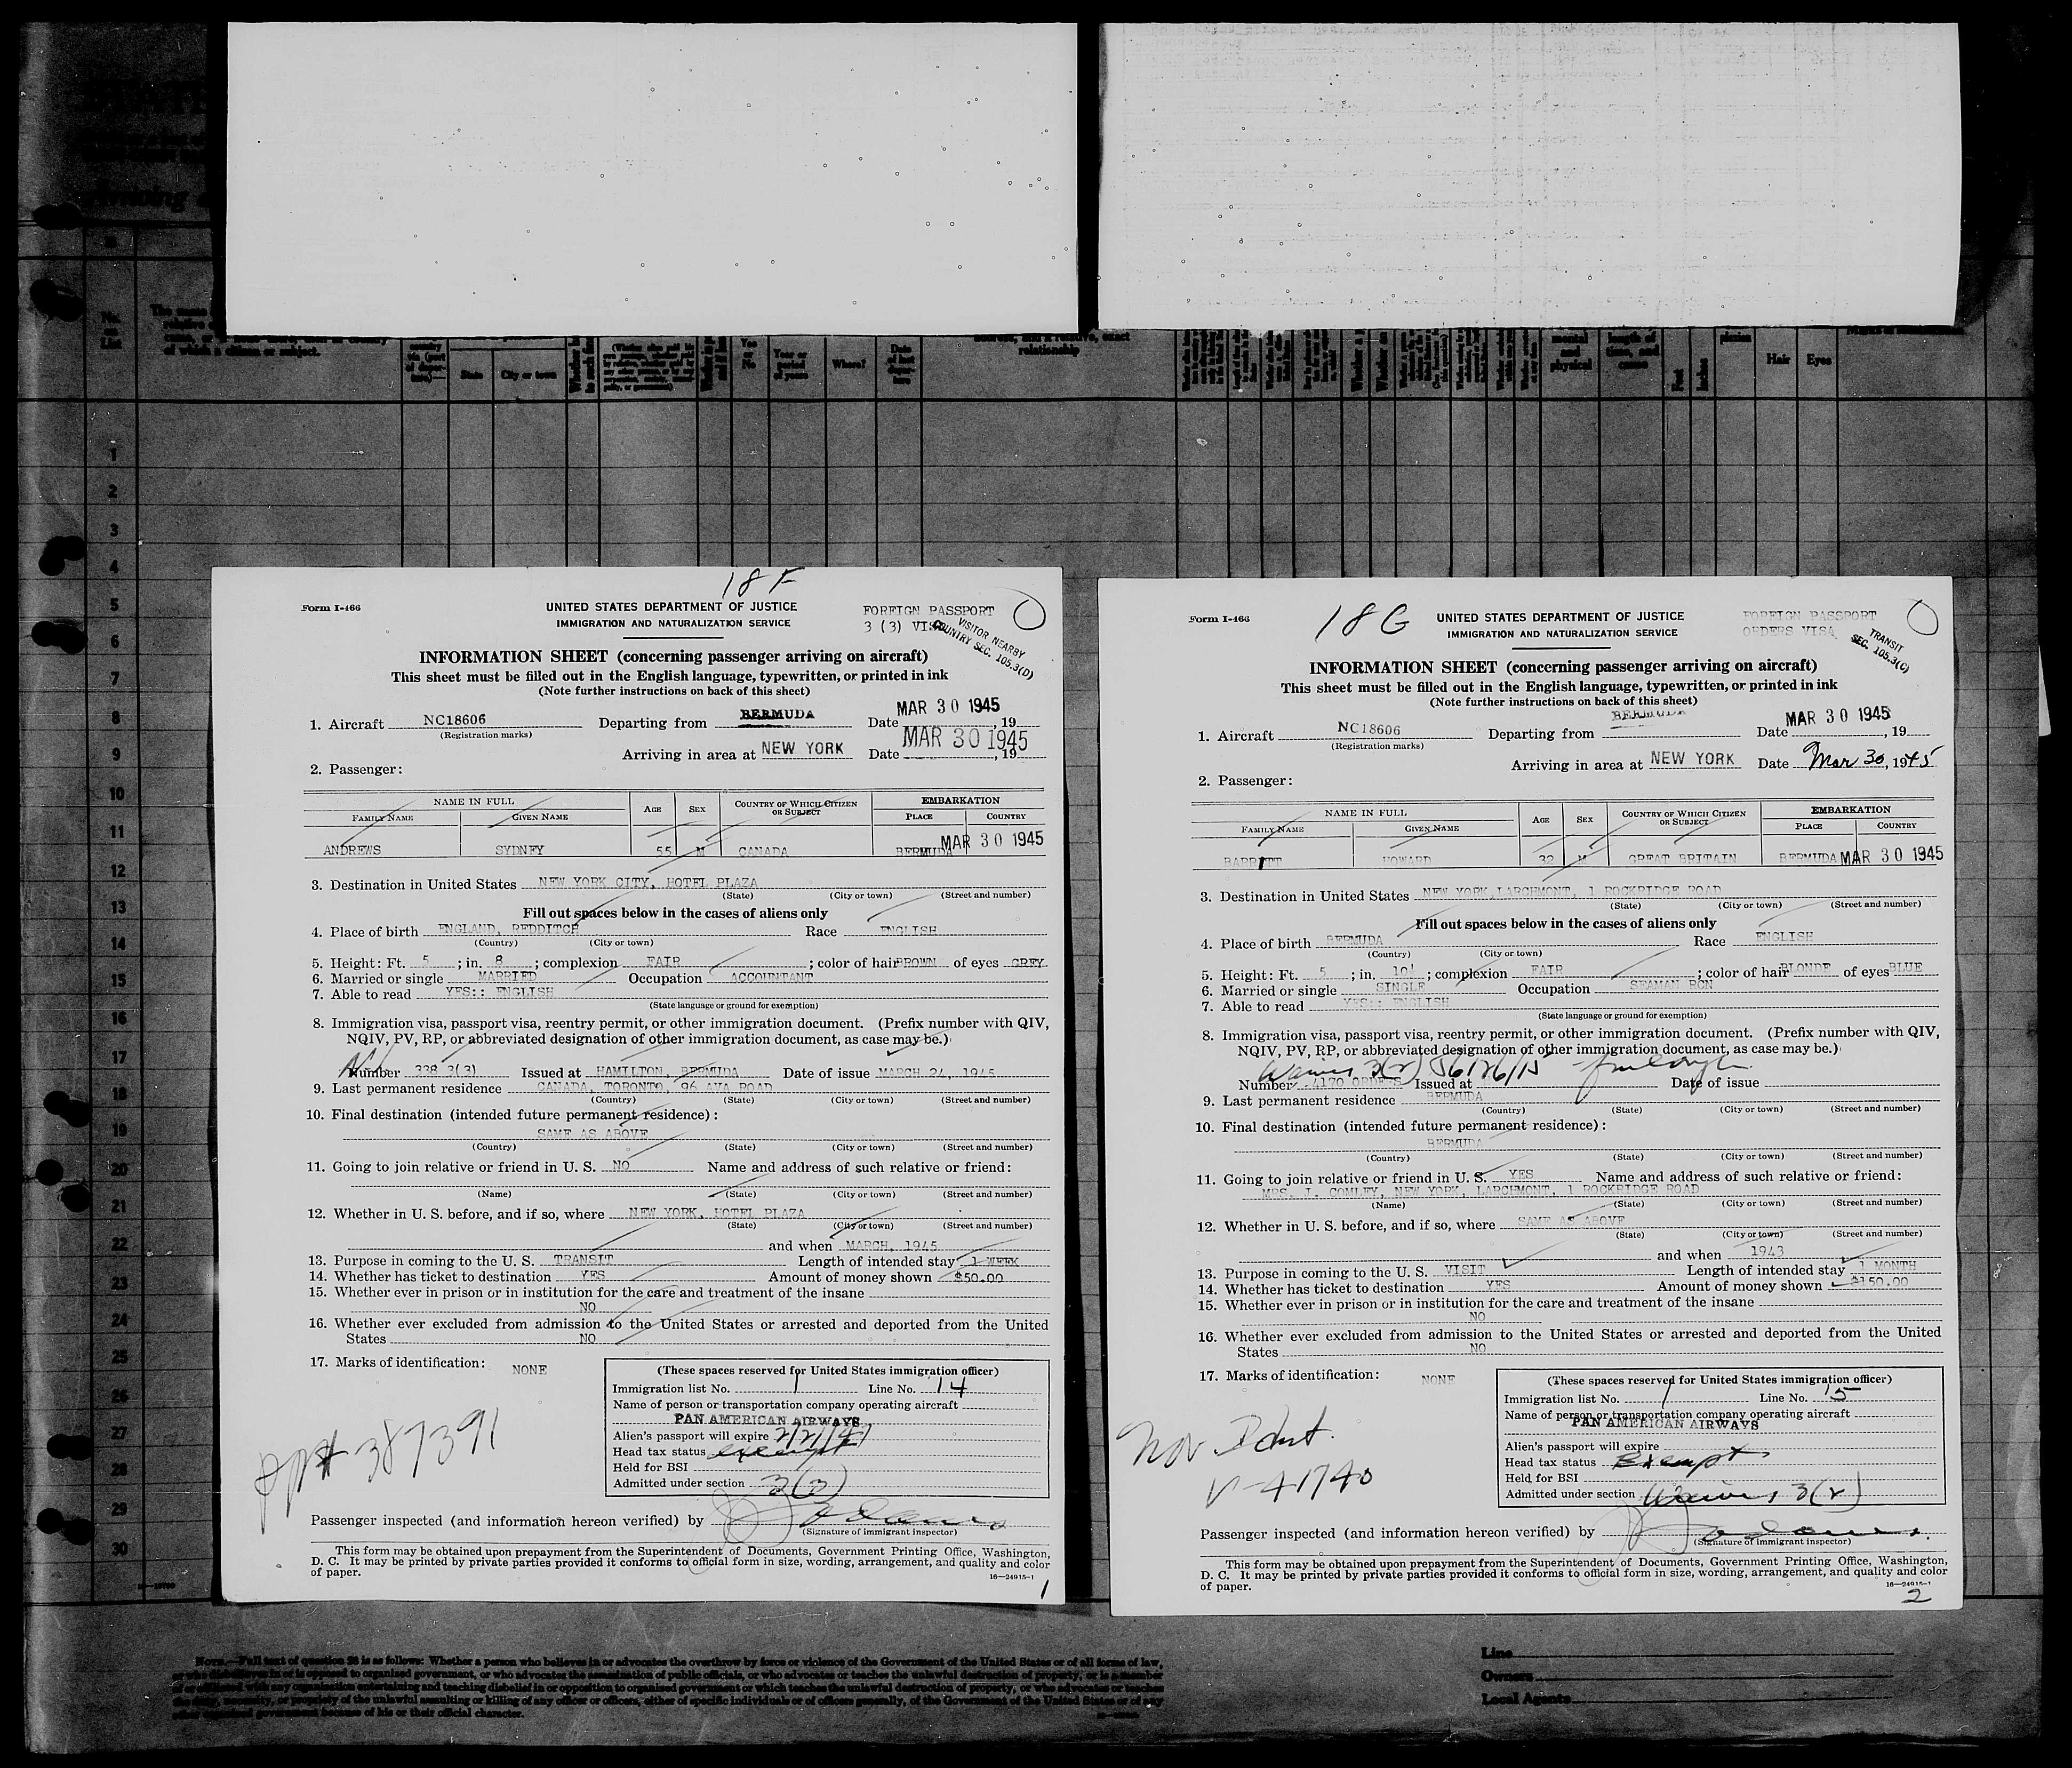 No. on List
of which a citizen or subject.
State
City or town
Yes or No
Year or period of years
Where?
relationship
mental and physical
Feet
Inches
Hair
Eyes
1
2
3
4
5
6
7
8
9
10
11
12
13
14
15
16
17
18
19
20
21
22
23
24
25
26
27
28
29
30
18 F
Form I-466
UNITED STATES DEPARTMENT OF JUSTICE
IMMIGRATION AND NATURALIZATION SERVICE
FOREIGN PASSPORT
3 (3) VISA
VISITOR NEARBY
COUNTRY SEC. 105.3(D)
INFORMATION SHEET (concerning passenger arriving on aircraft)
This sheet must be filled out in the English language, typewritten, or printed in ink
(Note further instructions on back of this sheet)
1. Aircraft NC18606 Departing from BERMUDA Date MAR 30 1945, 19
(Registration marks)
Arriving in area at NEW YORK Date MAR 30 1945, 19
2. Passenger:
NAME IN FULL AGE SEX COUNTRY OF WHICH CITIZEN OR SUBJECT EMBARKATION
FAMILY NAME GIVEN NAME PLACE COUNTRY
ANDREWS SYDNEY 55 M CANADA BERMUDA MAR 30 1945
3. Destination in United States NEW YORK CITY, HOTEL PLAZA
(State) (City or town) (Street and number)
Fill out spaces below in the cases of aliens only
4. Place of birth ENGLAND, REDDITCH Race ENGLISH
(Country) (City or town)
5. Height: Ft. 5 ; in. 8 ; complexion FAIR ; color of hair BROWN of eyes GREY
6. Married or single MARRIED Occupation ACCOUNTANT
7. Able to read YES:: ENGLISH
(State language or ground for exemption)
8. Immigration visa, passport visa, reentry permit, or other immigration document. (Prefix number with QIV,
NQIV, PV, RP, or abbreviated designation of other immigration document, as case may be.)
Number 338 3(3) Issued at HAMILTON, BERMUDA Date of issue MARCH 24, 1945
9. Last permanent residence CANADA, TORONTO, 96 AVA ROAD
(Country) (State) (City or town) (Street and number)
10. Final destination (intended future permanent residence):
SAME AS ABOVE
(Country) (State) (City or town) (Street and number)
11. Going to join relative or friend in U. S. NO Name and address of such relative or friend:
(Name) (State) (City or town) (Street and number)
12. Whether in U. S. before, and if so, where NEW YORK, HOTEL PLAZA
(State) (City or town) (Street and number)
and when MARCH, 1945
13. Purpose in coming to the U. S. TRANSIT Length of intended stay 1 WEEK
14. Whether has ticket to destination YES Amount of money shown $50.00
15. Whether ever in prison or in institution for the care and treatment of the insane
NO
16. Whether ever excluded from admission to the United States or arrested and deported from the United
States NO
17. Marks of identification: NONE
(These spaces reserved for United States immigration officer)
Immigration list No. 1 Line No. 14
Name of person or transportation company operating aircraft
PAN AMERICAN AIRWAYS
Alien's passport will expire 2/21/47
Head tax status exempt
Held for BSI
Admitted under section 3(3)
pp# 387391
Passenger inspected (and information hereon verified) by
(Signature of immigrant inspector)
This form may be obtained upon prepayment from the Superintendent of Documents, Government Printing Office, Washington,
D. C. It may be printed by private parties provided it conforms to official form in size, wording, arrangement, and quality and color
of paper.
16—24915-1
1
18 G
Form I-466
UNITED STATES DEPARTMENT OF JUSTICE
IMMIGRATION AND NATURALIZATION SERVICE
FOREIGN PASSPORT
ORDERS VISA
TRANSIT
SEC. 105.3(C)
INFORMATION SHEET (concerning passenger arriving on aircraft)
This sheet must be filled out in the English language, typewritten, or printed in ink
(Note further instructions on back of this sheet)
1. Aircraft NC18606 Departing from BERMUDA Date MAR 30 1945, 19
(Registration marks)
Arriving in area at NEW YORK Date Mar 30, 1945
2. Passenger:
NAME IN FULL AGE SEX COUNTRY OF WHICH CITIZEN OR SUBJECT EMBARKATION
FAMILY NAME GIVEN NAME PLACE COUNTRY
BARRITT HOWARD 32 M GREAT BRITAIN BERMUDA MAR 30 1945
3. Destination in United States NEW YORK, LARCHMONT, 1 ROCKRIDGE ROAD
(State) (City or town) (Street and number)
Fill out spaces below in the cases of aliens only
4. Place of birth BERMUDA Race ENGLISH
(Country) (City or town)
5. Height: Ft. 5 ; in. 10 ; complexion FAIR ; color of hair BLONDE of eyes BLUE
6. Married or single SINGLE Occupation SEAMAN RCN
7. Able to read YES:: ENGLISH
(State language or ground for exemption)
8. Immigration visa, passport visa, reentry permit, or other immigration document. (Prefix number with QIV,
NQIV, PV, RP, or abbreviated designation of other immigration document, as case may be.)
Waiver 3(2) 56126/15 furlough
Number 4170 ORDERS Issued at Date of issue
9. Last permanent residence BERMUDA
(Country) (State) (City or town) (Street and number)
10. Final destination (intended future permanent residence):
BERMUDA
(Country) (State) (City or town) (Street and number)
11. Going to join relative or friend in U. S. YES Name and address of such relative or friend:
MRS. J. COMLEY, NEW YORK, LARCHMONT, 1 ROCKRIDGE ROAD
(Name) (State) (City or town) (Street and number)
12. Whether in U. S. before, and if so, where SAME AS ABOVE
(State) (City or town) (Street and number)
and when 1943
13. Purpose in coming to the U. S. VISIT Length of intended stay 1 MONTH
14. Whether has ticket to destination YES Amount of money shown $150.00
15. Whether ever in prison or in institution for the care and treatment of the insane
NO
16. Whether ever excluded from admission to the United States or arrested and deported from the United
States NO
17. Marks of identification: NONE
(These spaces reserved for United States immigration officer)
Immigration list No. 1 Line No. 15
Name of person or transportation company operating aircraft
PAN AMERICAN AIRWAYS
Alien's passport will expire
Head tax status Exempt
Held for BSI
Admitted under section Waiver 3(2)
V-41740
Passenger inspected (and information hereon verified) by
(Signature of immigrant inspector)
This form may be obtained upon prepayment from the Superintendent of Documents, Government Printing Office, Washington,
D. C. It may be printed by private parties provided it conforms to official form in size, wording, arrangement, and quality and color
of paper.
16—24915-1
2
NOTE.—Full text of question 28 is as follows: Whether a person who believes in or advocates the overthrow by force or violence of the Government of the United States or of all forms of law,
Line
Owners
Local Agents